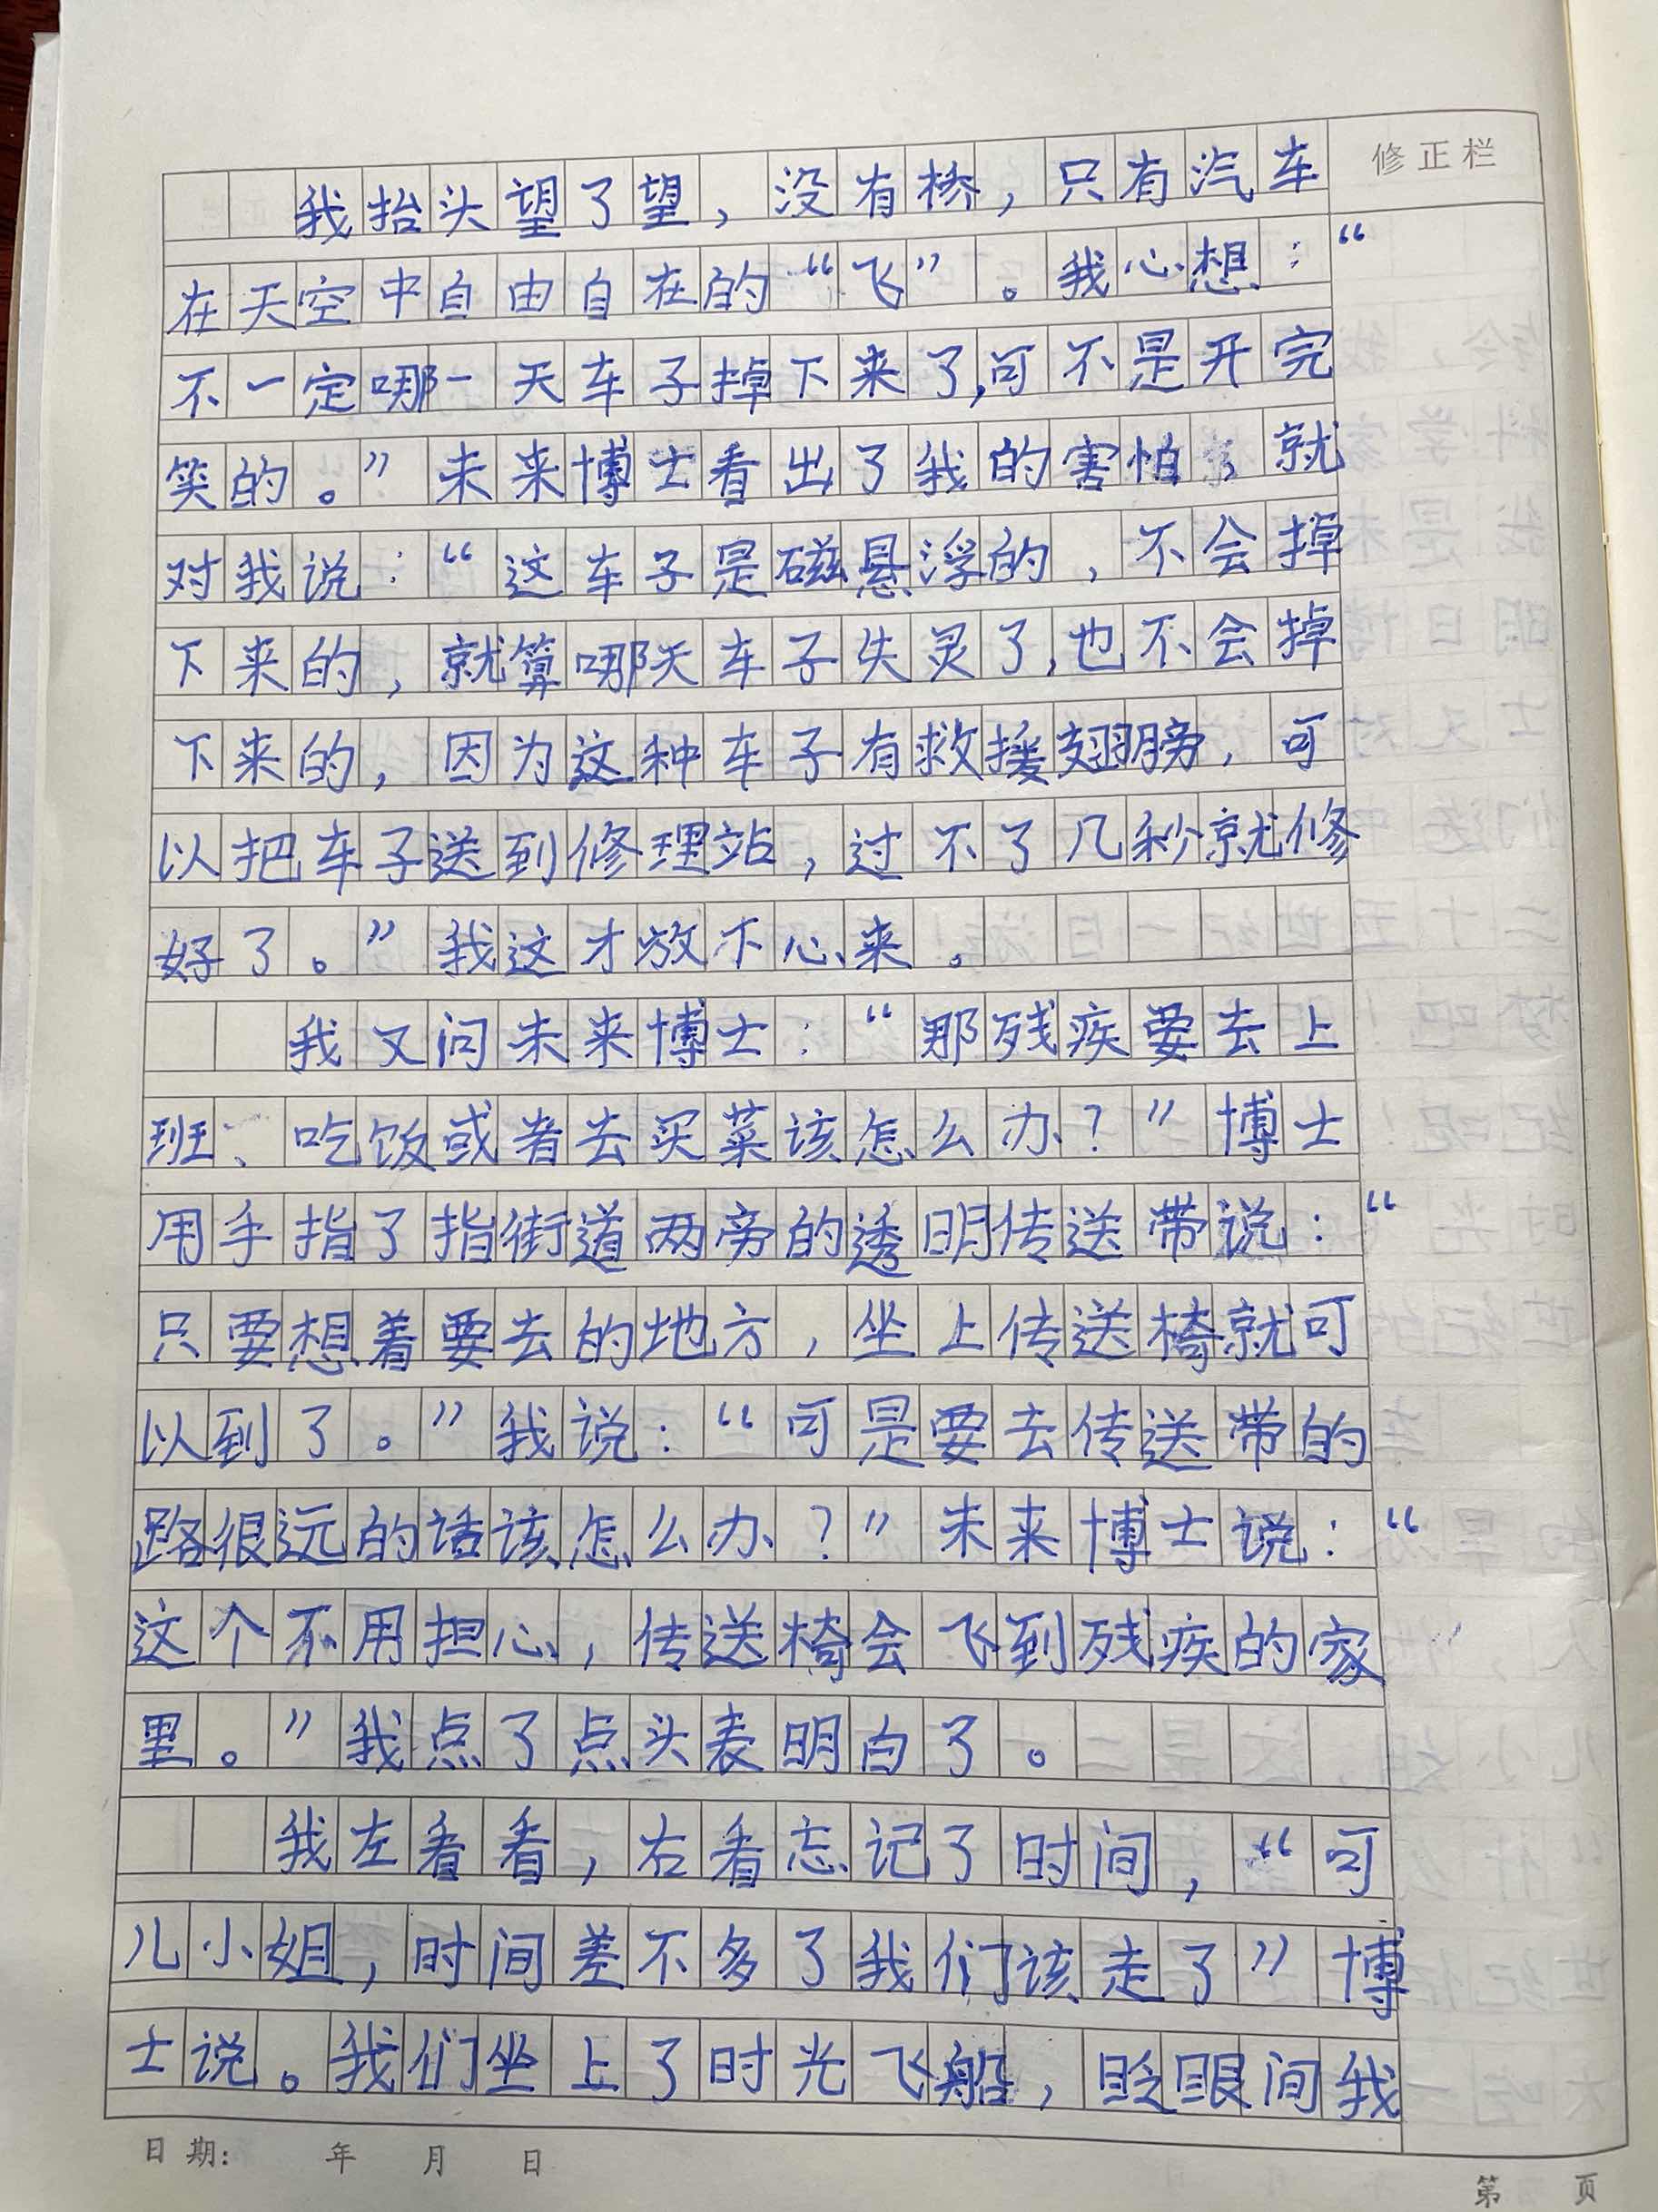 修正栏
我抬头望了望，没有桥，只有汽车
在天空中自由自在的“飞”。我心想：“
不一定哪一天车子掉下来了,可不是开完
笑的。”未来博士看出了我的害怕，就
对我说：“这车子是磁悬浮的，不会掉
下来的，就算哪天车子失灵了,也不会掉
下来的，因为这种车子有救援翅膀，可
以把车子送到修理站，过不了几秒就修
好了。”我这才放下心来。
我又问未来博士：“那残疾要去上
班、吃饭或者去买菜该怎么办？”博士
用手指了指街道两旁的透明传送带说：“
只要想着要去的地方，坐上传送椅就可
以到了。”我说：“可是要去传送带的
路很远的话该怎么办？”未来博士说：“
这个不用担心，传送椅会飞到残疾的家
里。”我点了点头表明白了。
我左看看，右看忘记了时间，“可
儿小姐，时间差不多了我们该走了”博
士说。我们坐上了时光飞船，眨眼间我
日期： 年 月 日
第 页